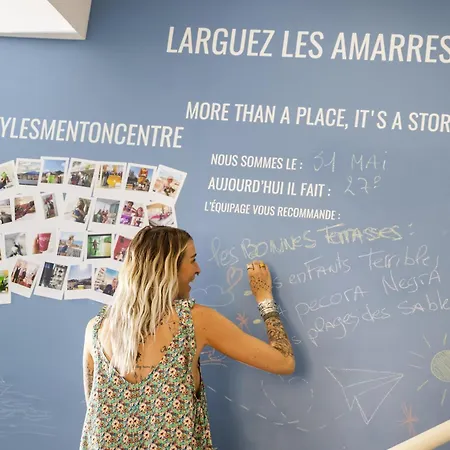 LARGUEZ LES AMARRES
MORE THAN A PLACE, IT'S A STOR
YLESMENTONCENTRE
NOUS SOMMES LE : 31 MAI
AUJOURD'HUI IL FAIT : 27°
L'ÉQUIPAGE VOUS RECOMMANDE :
les BONNES TERRASSES :
enfants Terrible
pecora Negra
plages des Sable